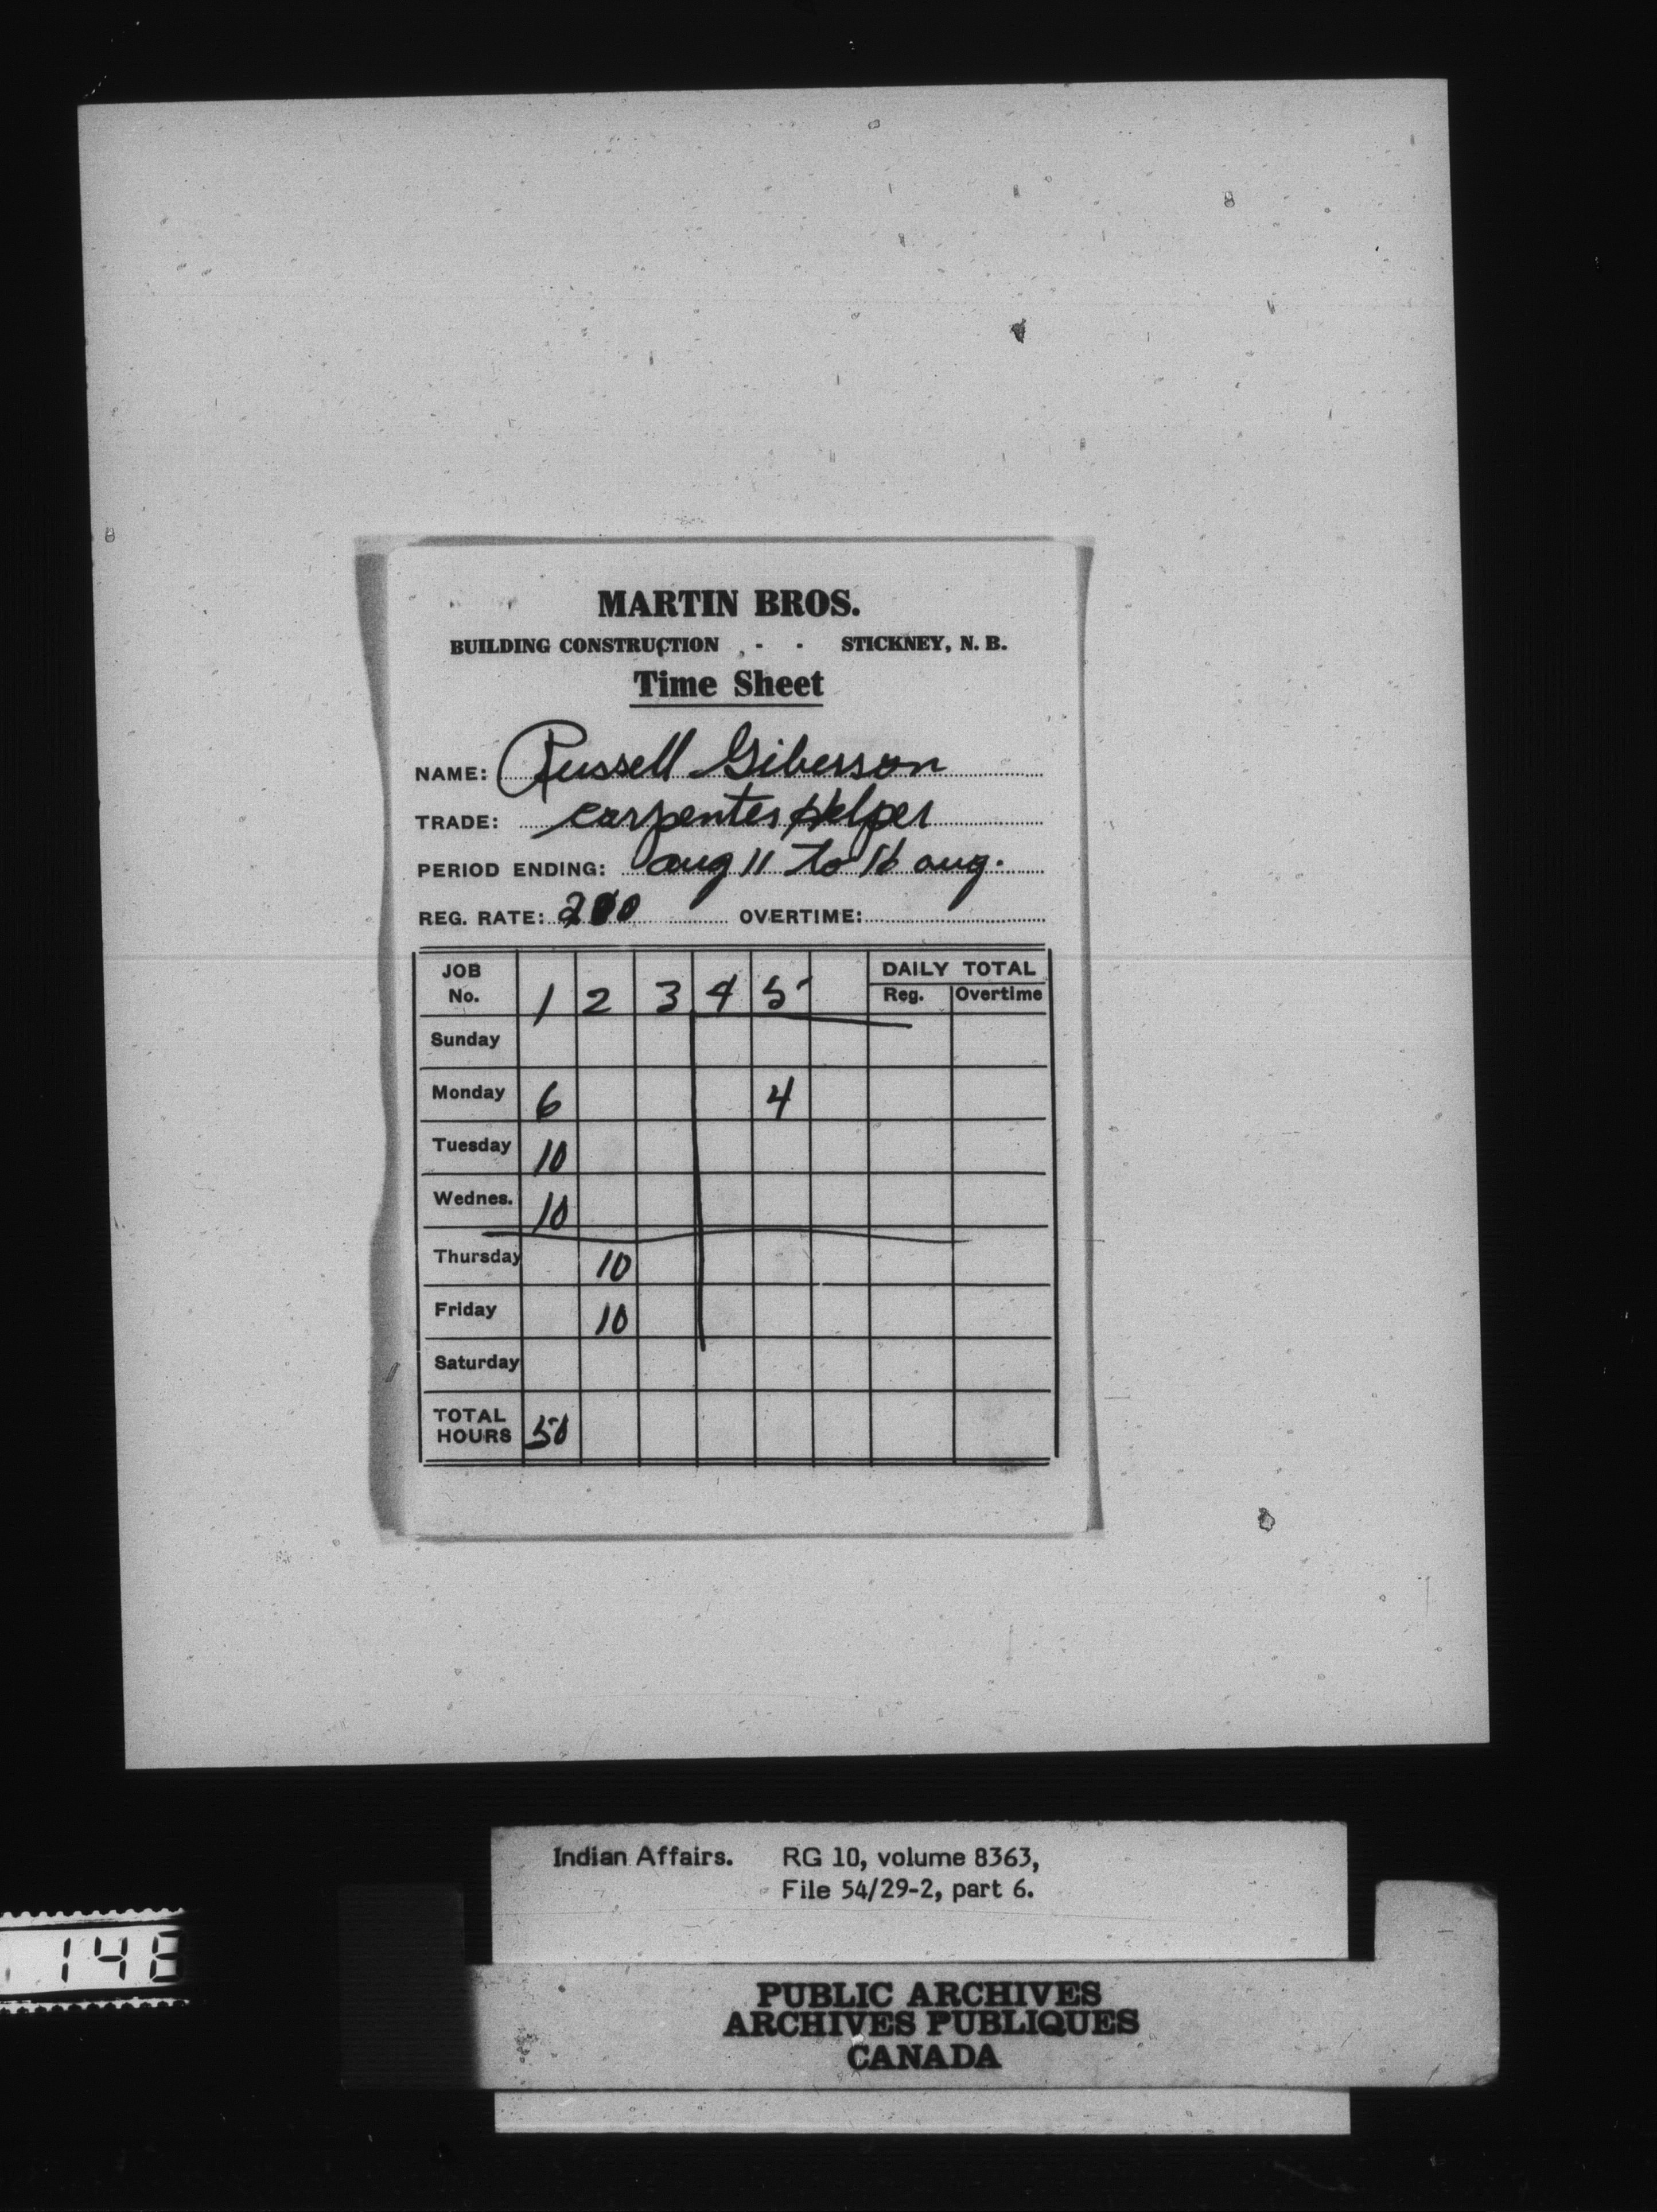 MARTIN BROS.
BUILDING CONSTRUCTION - - STICKNEY, N. B.
Time Sheet
NAME: Russell Giberson
TRADE: Carpenter Helper
PERIOD ENDING: Aug 11 to 16 Aug.
REG. RATE: OVERTIME:
JOB No. 1 2 3 4 5 DAILY TOTAL
Reg. Overtime
Sunday
Monday 6 4
Tuesday 10
Wednes. 10
Thursday 10
Friday 10
Saturday
TOTAL HOURS 50
Indian Affairs. RG 10, volume 8363,
File 54/29-2, part 6.
148
PUBLIC ARCHIVES
ARCHIVES PUBLIQUES
CANADA